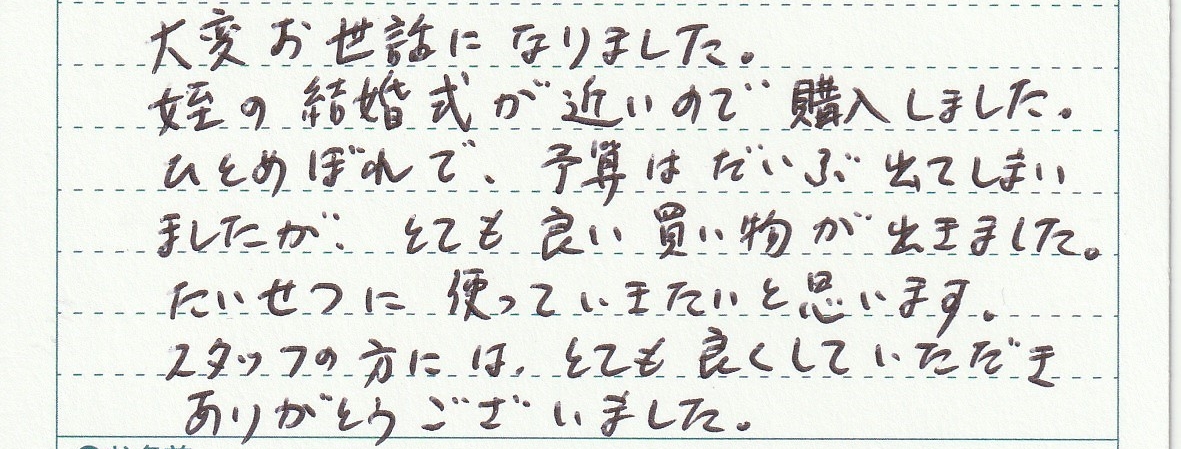 大変お世話になりました。
姪の結婚式が近いので購入しました。
ひとめぼれで、予算はだいぶ出てしまい
ましたが、とても良い買い物が出きました。
たいせつに使っていきたいと思います。
スタッフの方には、とても良くしていただき
ありがとうございました。